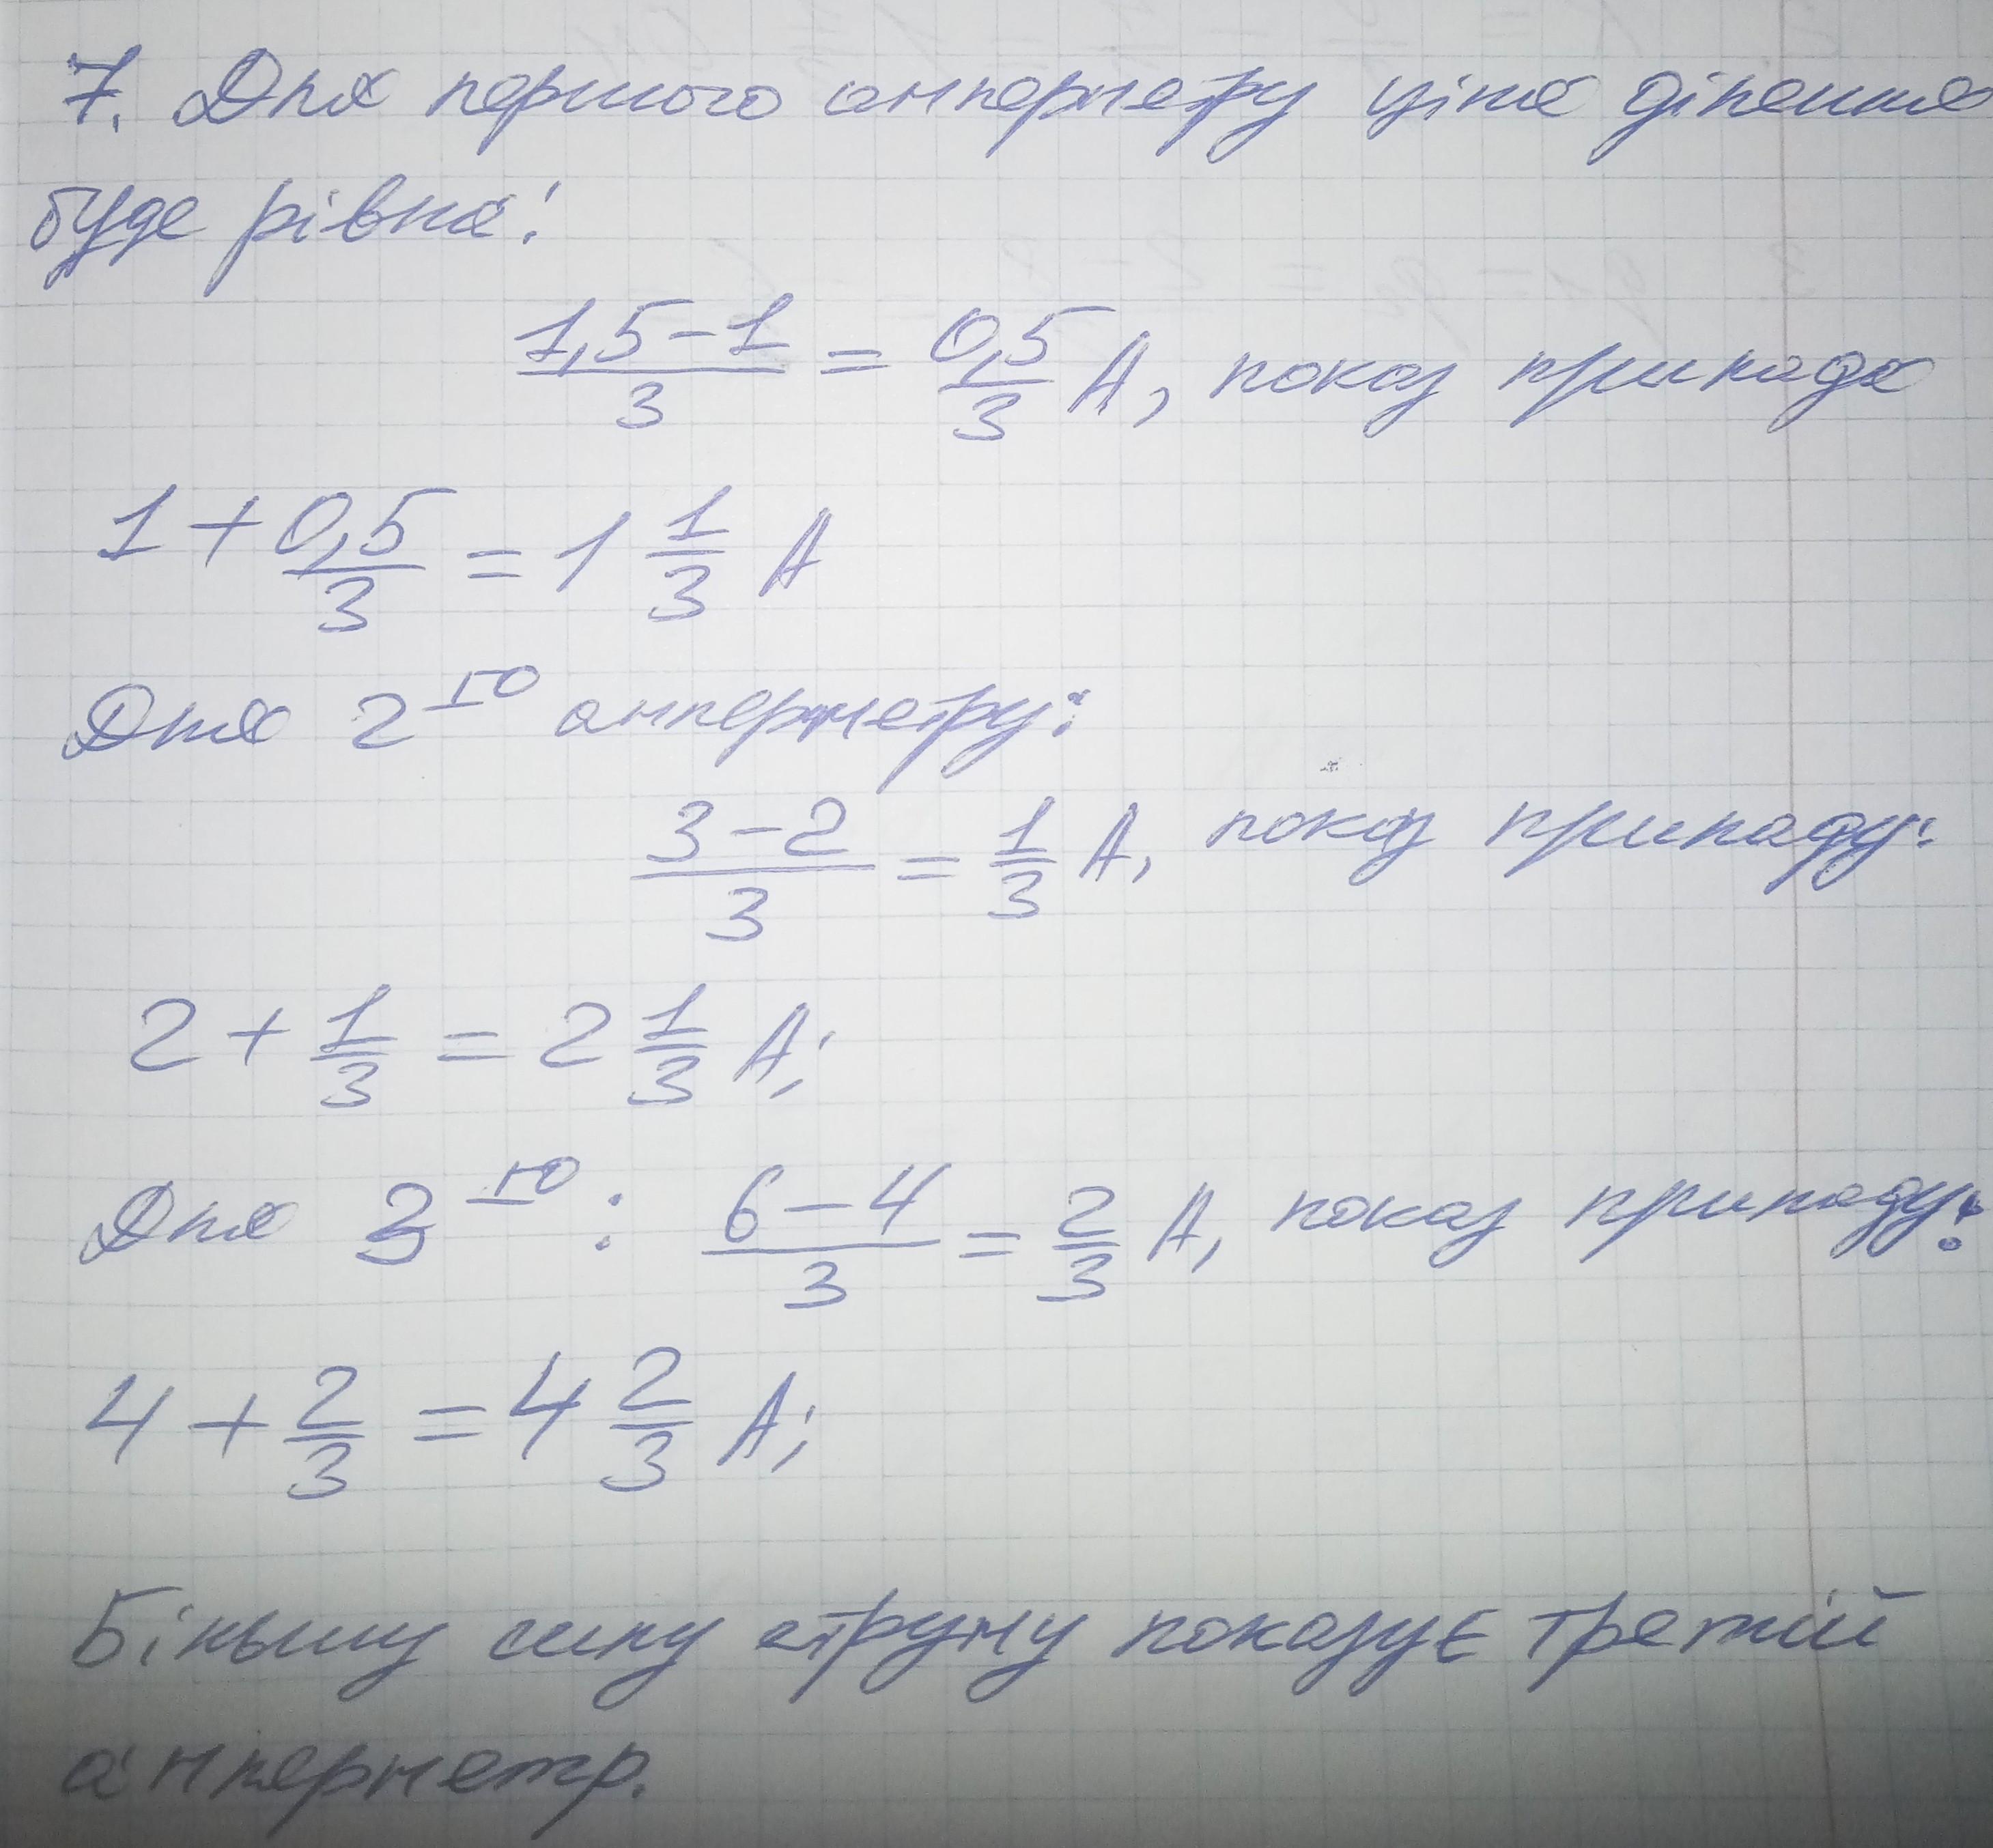 7. Для першого амперметру ціна ділення
буде рівна:
(1,5-1)/3 = 0,5/3 A, показ приладa
1 + 0,5/3 = 1 1/3 A
Для 2го амперметру:
(3-2)/3 = 1/3 A, показ приладу:
2 + 1/3 = 2 1/3 A;
Для 3го : (6-4)/3 = 2/3 A, показ приладу:
4 + 2/3 = 4 2/3 A;
Більшу силу струму показує третій
амперметр.